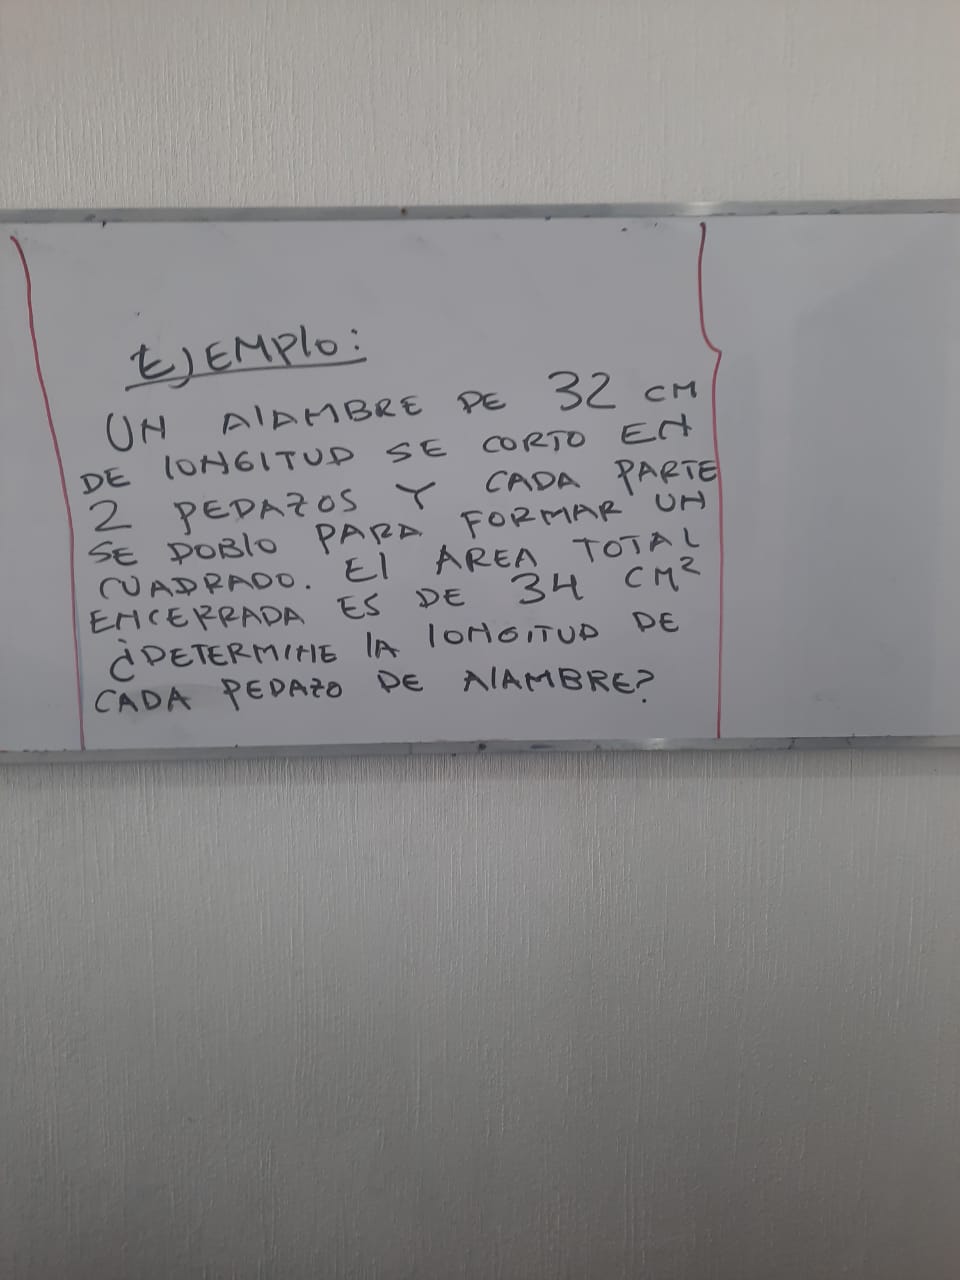 EJEMPlO:
UN AlAMBRE DE 32 CM
DE lONGITUD SE CORTO EN
2 PEDAZOS Y CADA PARTE
SE DOBlO PARA FORMAR UN
CUADRADO. El AREA TOTAL
ENCERRADA ES DE 34 CM²
¿DETERMINE lA lONGITUD DE
CADA PEDAZO DE AlAMBRE?